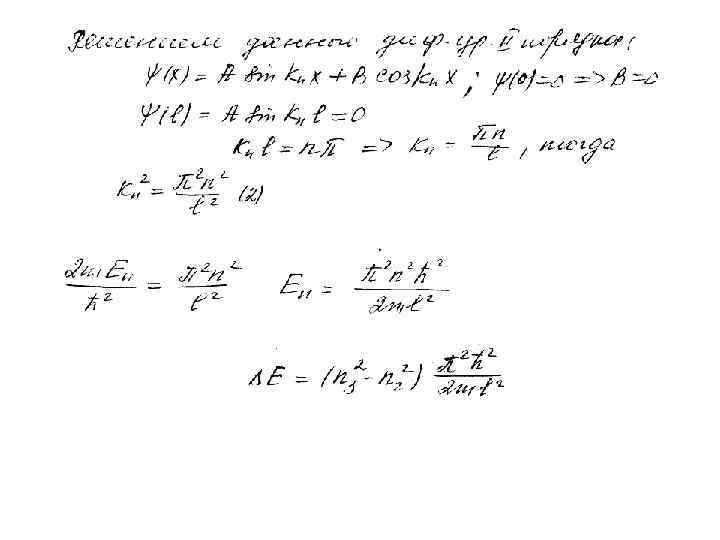 Решением данного диф. ур. II порядка:
Ψ(x) = A sin kₙx + B cos kₙx ; Ψ(0)=0 => B=0
Ψ(ℓ) = A sin kₙℓ = 0
kₙℓ = nπ => kₙ = πn/ℓ , тогда
kₙ² = π²n²/ℓ² (2)
2mEₙ/ħ² = π²n²/ℓ² Eₙ = π²n²ħ²/2mℓ²
ΔE = (n₃² - n₂²) π²ħ²/2mℓ²